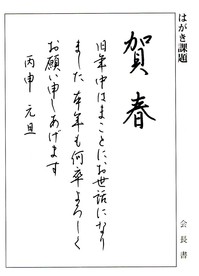 はがき課題
賀春
旧年中はまことにお世話になり
ました 本年も何卒よろしく
お願い申しあげます
丙申 元旦
会長書